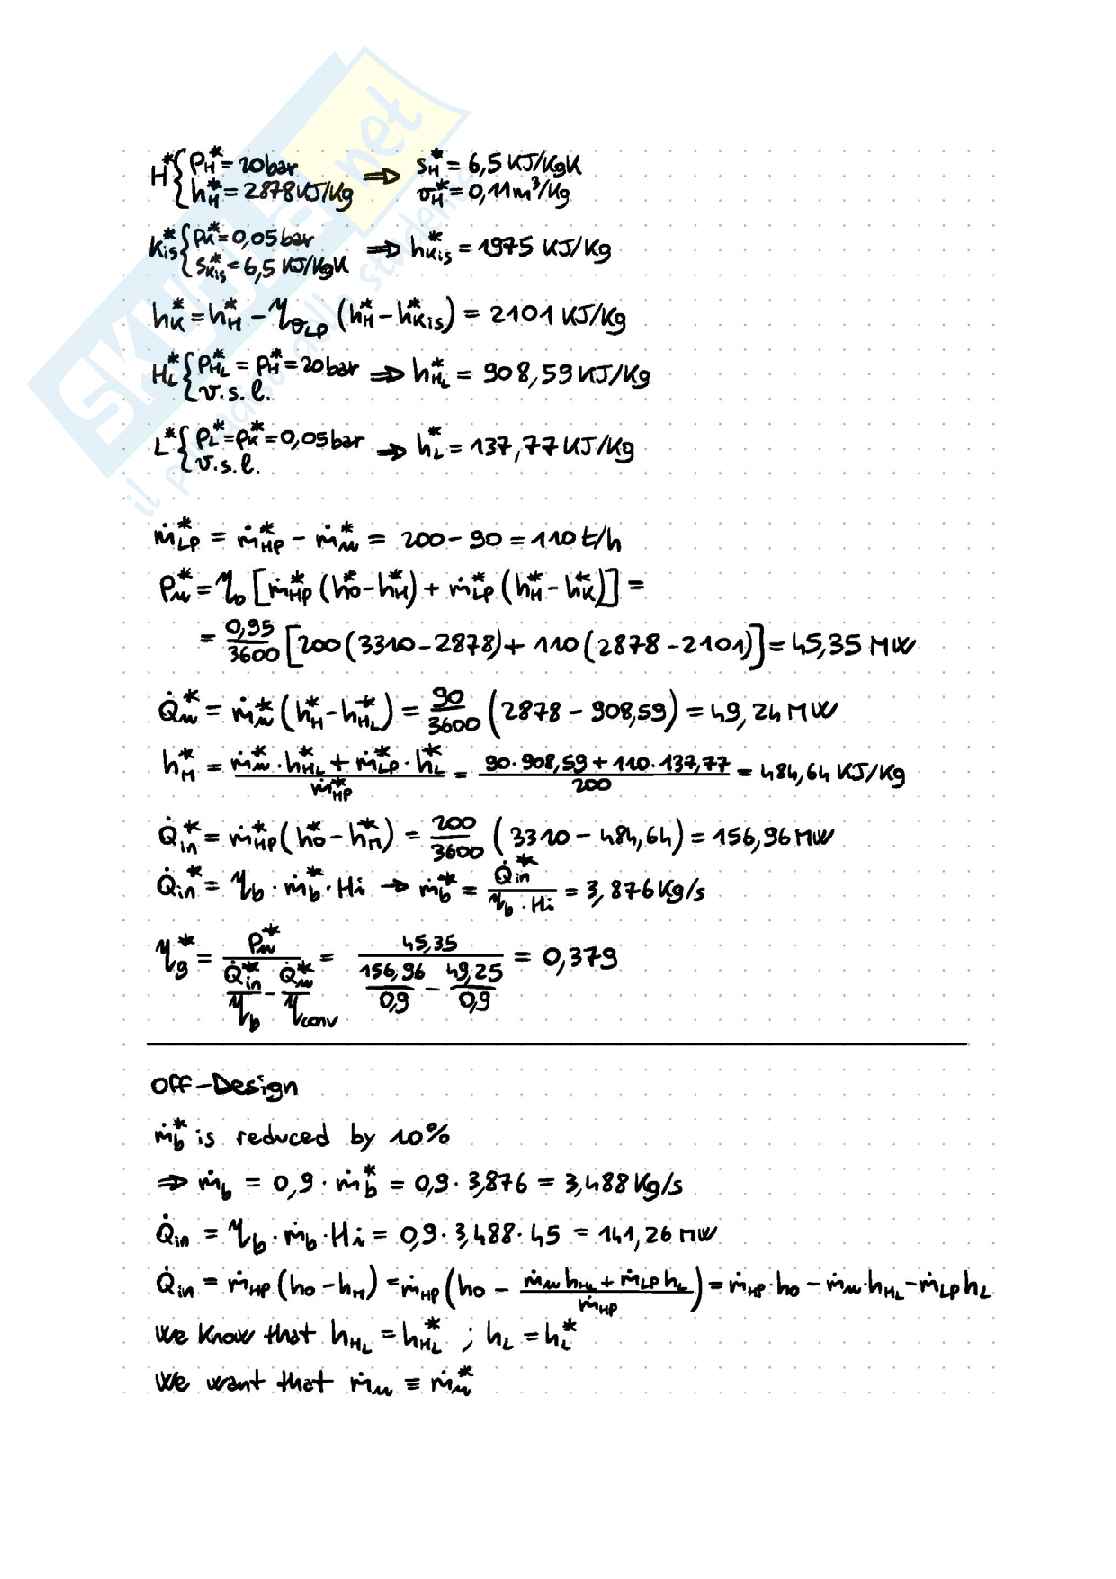 H* { p_H* = 20 bar ⇒ s_H* = 6,5 KJ/KgK
h_H* = 2878 KJ/Kg v_H* = 0,11 m³/Kg
K_is* { p_K* = 0,05 bar ⇒ h_Kis* = 1975 KJ/Kg
s_Kis* = 6,5 KJ/KgK
h_K* = h_H* − η_θLP (h_H* − h_Kis*) = 2101 KJ/Kg
H_L* { p_HL* = p_H* = 20 bar ⇒ h_HL* = 908,59 KJ/Kg
v.s.l.
L* { p_L* = p_K* = 0,05 bar ⇒ h_L* = 137,77 KJ/Kg
v.s.l.
ṁ_LP* = ṁ_HP* − ṁ_u* = 200 − 90 = 110 t/h
P_u* = η_o [ṁ_HP* (h_o* − h_H*) + ṁ_LP* (h_H* − h_K*)] =
= 0,95/3600 [200 (3310 − 2878) + 110 (2878 − 2101)] = 45,35 MW
Q̇_u* = ṁ_u* (h_H* − h_HL*) = 90/3600 (2878 − 908,59) = 49,24 MW
h_M* = (ṁ_u* · h_HL* + ṁ_LP* · h_L*)/ṁ_HP* = (90·908,59 + 110·137,77)/200 = 484,64 KJ/Kg
Q̇_in* = ṁ_HP* (h_o* − h_M*) = 200/3600 (3310 − 484,64) = 156,96 MW
Q̇_in* = η_b · ṁ_b* · Hi → ṁ_b* = Q̇_in*/(η_b · Hi) = 3,876 Kg/s
η_g* = P_u*/(Q̇_in*/η_b − Q̇_u*/η_conv) = 45,35/(156,96/0,9 − 49,25/0,9) = 0,379
Off-Design
ṁ_b* is reduced by 10%
⇒ ṁ_b = 0,9 · ṁ_b* = 0,9 · 3,876 = 3,488 Kg/s
Q̇_in = η_b · ṁ_b · Hi = 0,9 · 3,488 · 45 = 141,26 MW
Q̇_in = ṁ_HP (h_o − h_M) = ṁ_HP (h_o − (ṁ_u h_HL + ṁ_LP h_L)/ṁ_HP) = ṁ_HP · h_o − ṁ_u · h_HL − ṁ_LP h_L
We know that h_HL = h_HL* ; h_L = h_L*
We want that ṁ_u ≡ ṁ_u*